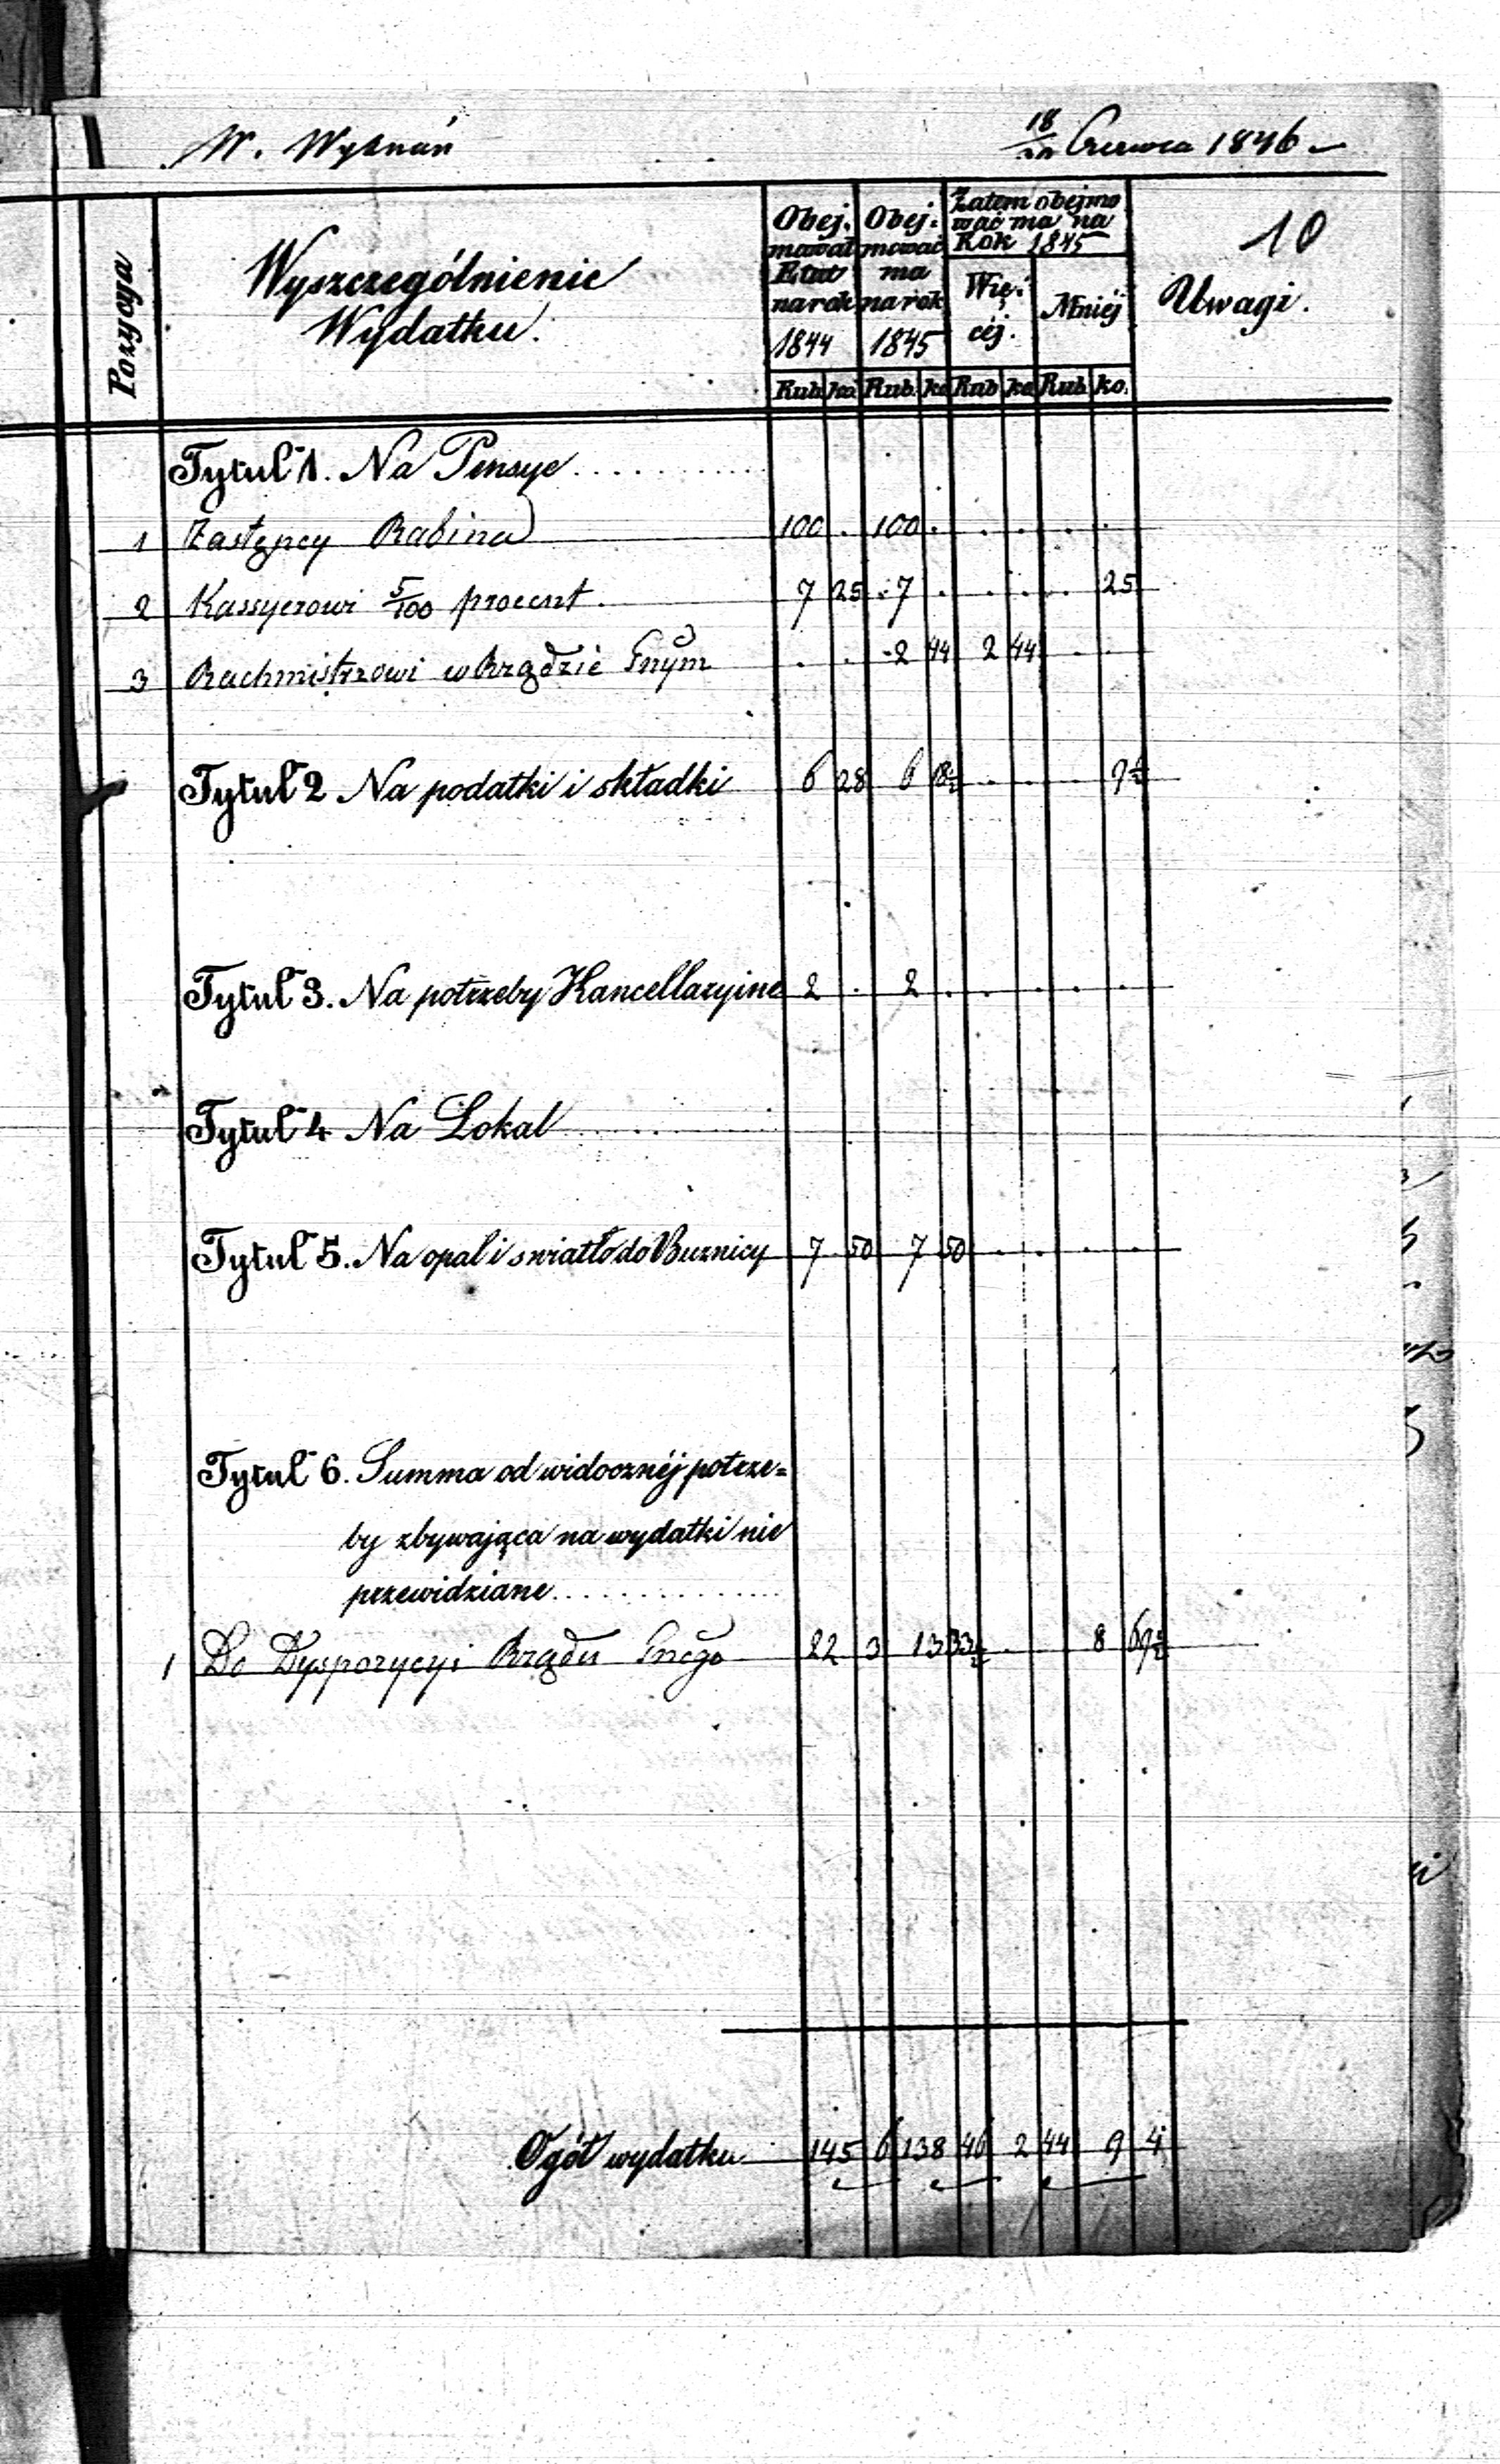 W. Wyznań
18/30 Czerwca 1846
Pozycya
Wyszczególnienie
Wydatku.
Obej-
mował
Etat
na rok
1844
Obej-
mować
ma
na rok
1845
Zatem obejmo
wać ma na
Rok 1845
Wię-
cej.
Mniej
10
Uwagi.
Rub. ko. Rub. ko. Rub. ko. Rub. ko.
Tytuł 1. Na Pensye . . . . . . . . . . .
1 Zastępcy Rabina 100 . 100 . . . . .
2 Kassyerowi 5/100 procent. 7 25 7 . . . . 25
3 Rachmistrzowi w Rządzie Gnym . . 2 44 2 44 . .
Tytuł 2 Na podatki i składki 6 28 6 18½ . . . 9½
Tytuł 3. Na potrzeby Kancellaryine 2 . 2 . . . . .
Tytuł 4 Na Lokal . . . . . . . . .
Tytuł 5. Na opal i swiatło do Buznicy 7 50 7 50 . . . .
Tytuł 6. Summa od widocznéj potrze=
by zbywająca na wydatki nie
przewidziane . . . . . . . . . . . . . .
1 Do Dyspozycyi Rządu Gnego 22 3 13 33½ . . 8 69½
Ogół wydatku 145 6 138 46 2 44 9 4